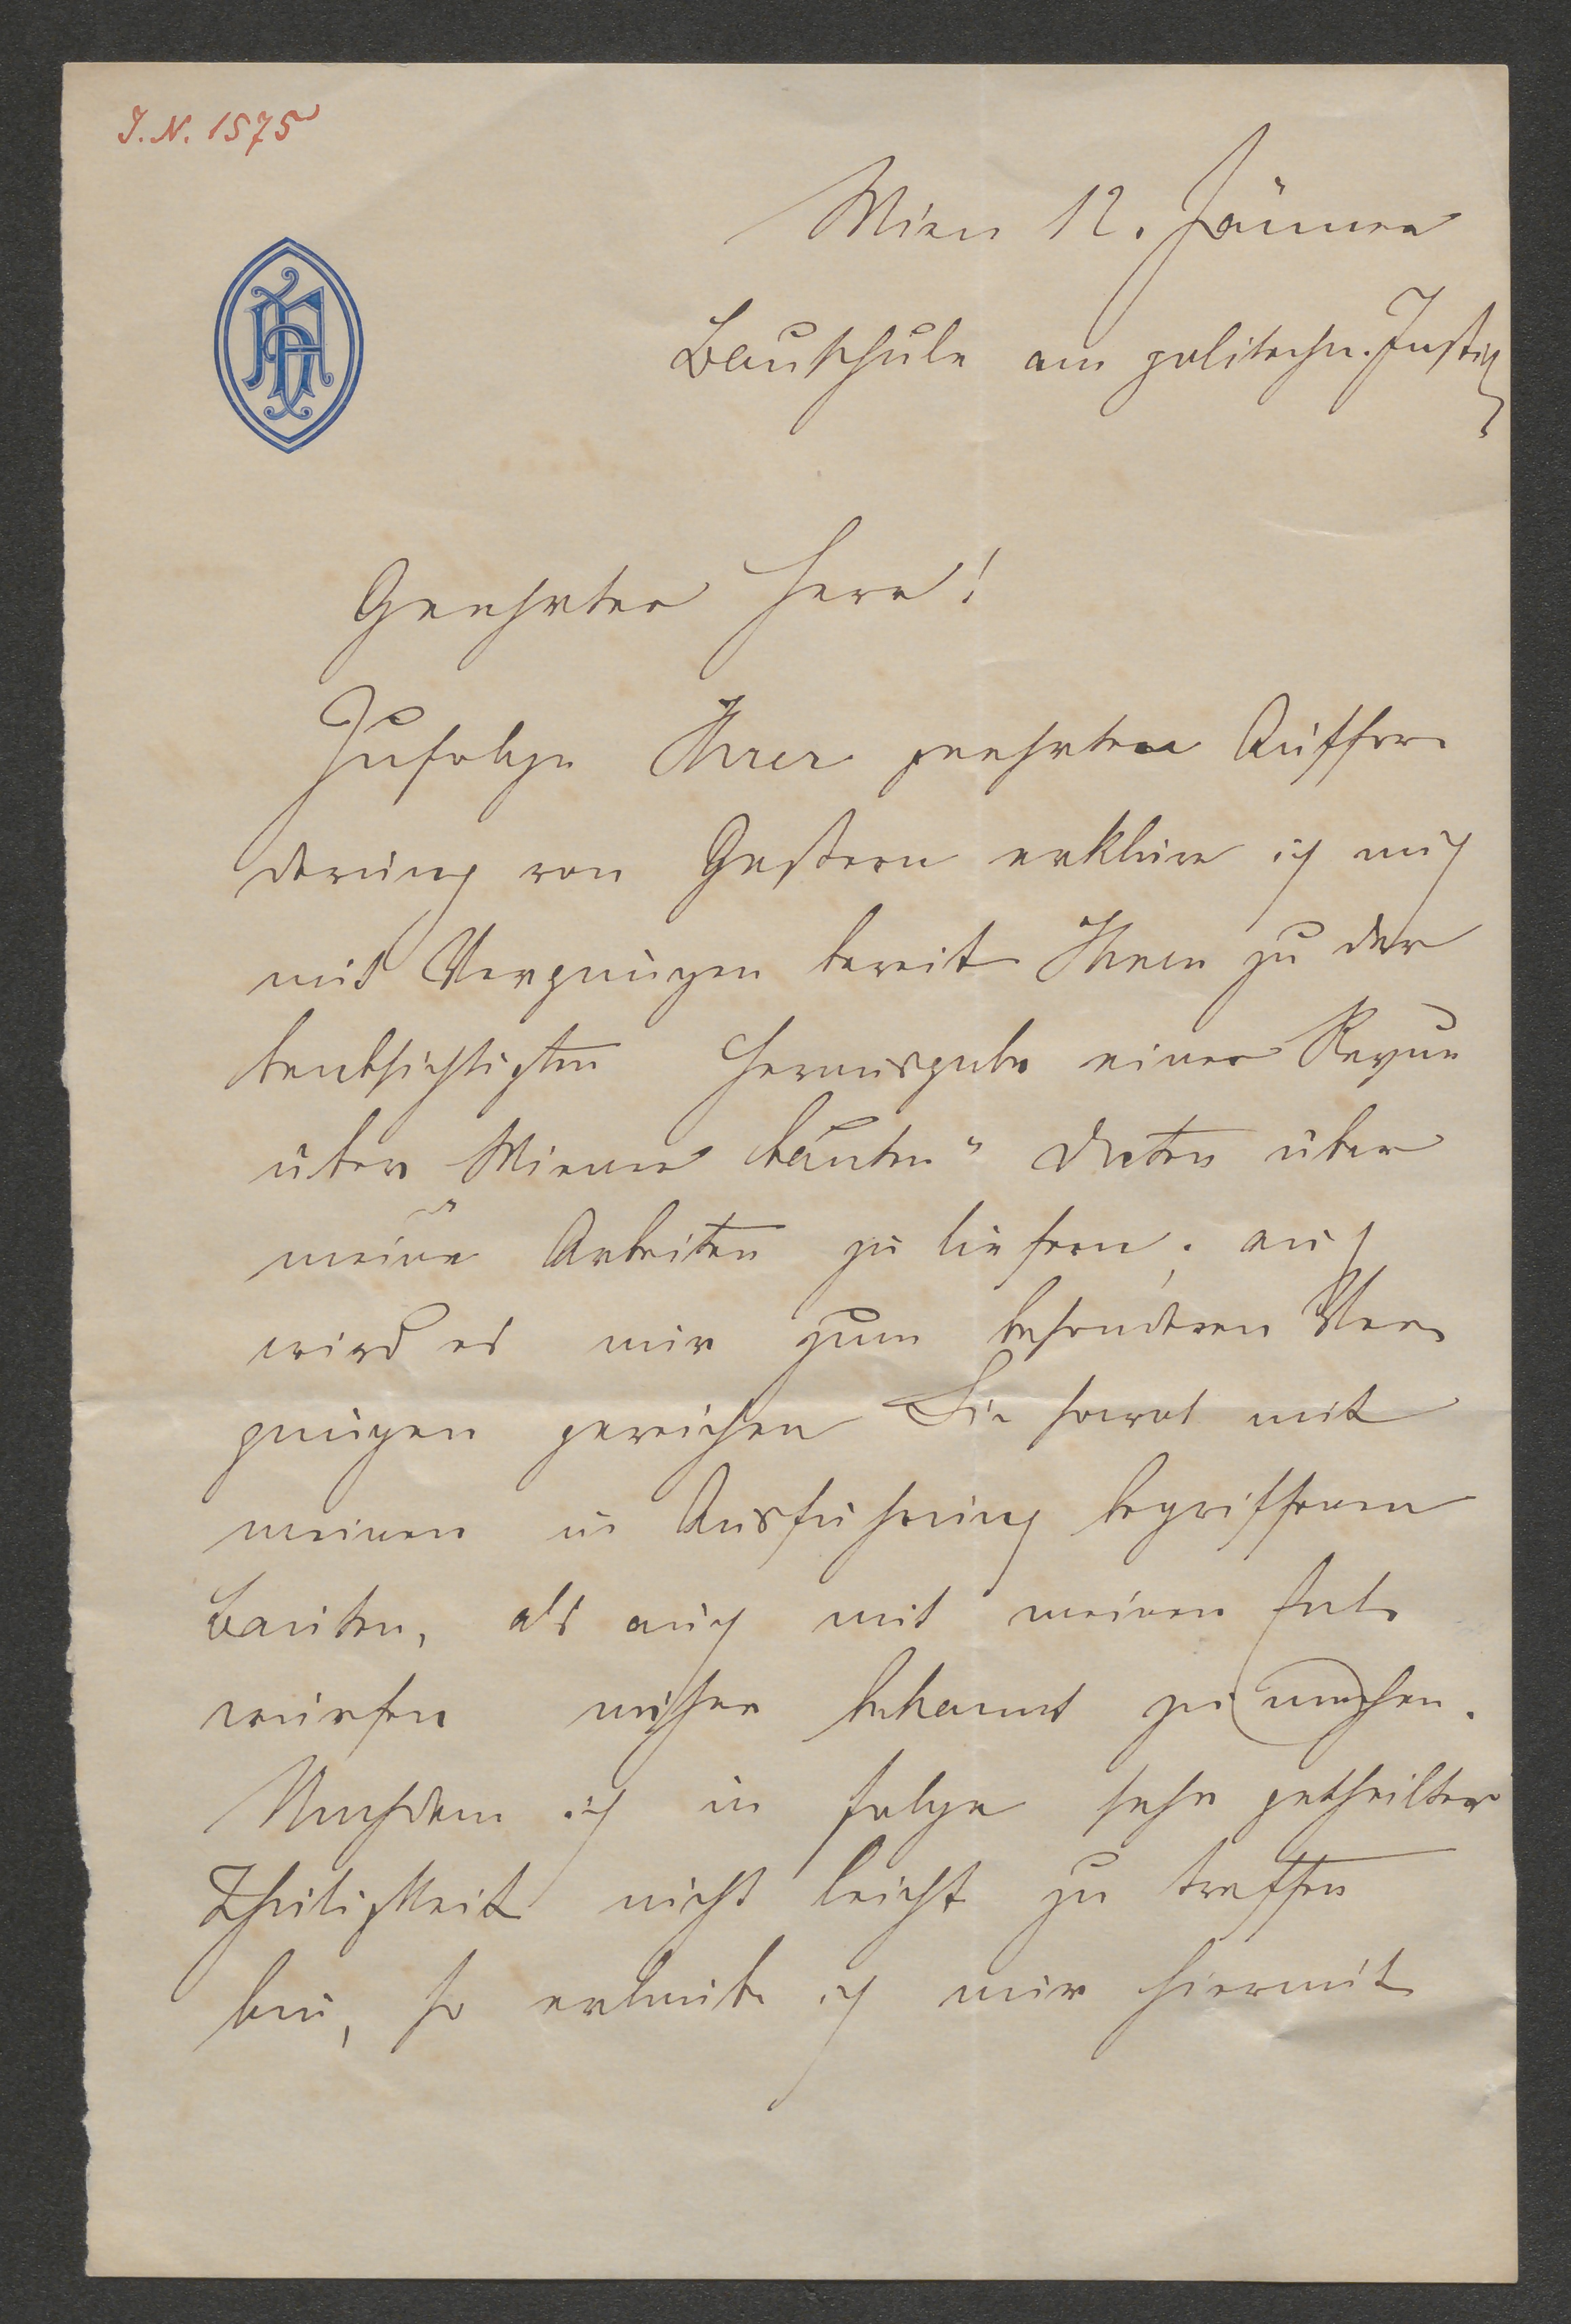 J. N. 1575
Wien 12. Jänner
Bauschule am politechn. Instit
Geehrter Herr!
Zufolge Ihrer geehrten Auffor-
derung von Gestern erkläre ich mich
mit Vergnügen bereit Ihnen zu der
beabsichtigten Herausgabe einer Revue
über „Wiener bauten" Daten über
meine Arbeiten zu liefern; auch
wird es mir zum besonderen Ver-
gnügen gereichen Sie sowol mit
meinen in Ausführung begriffenen
Bauten, als auch mit meinen Ent-
würfen näher bekannt zu machen.
Nachdem ich in folge sehr getheilter
Thätigkeit nicht leicht zu treffen
bin, so erlaube ich mir hiermit